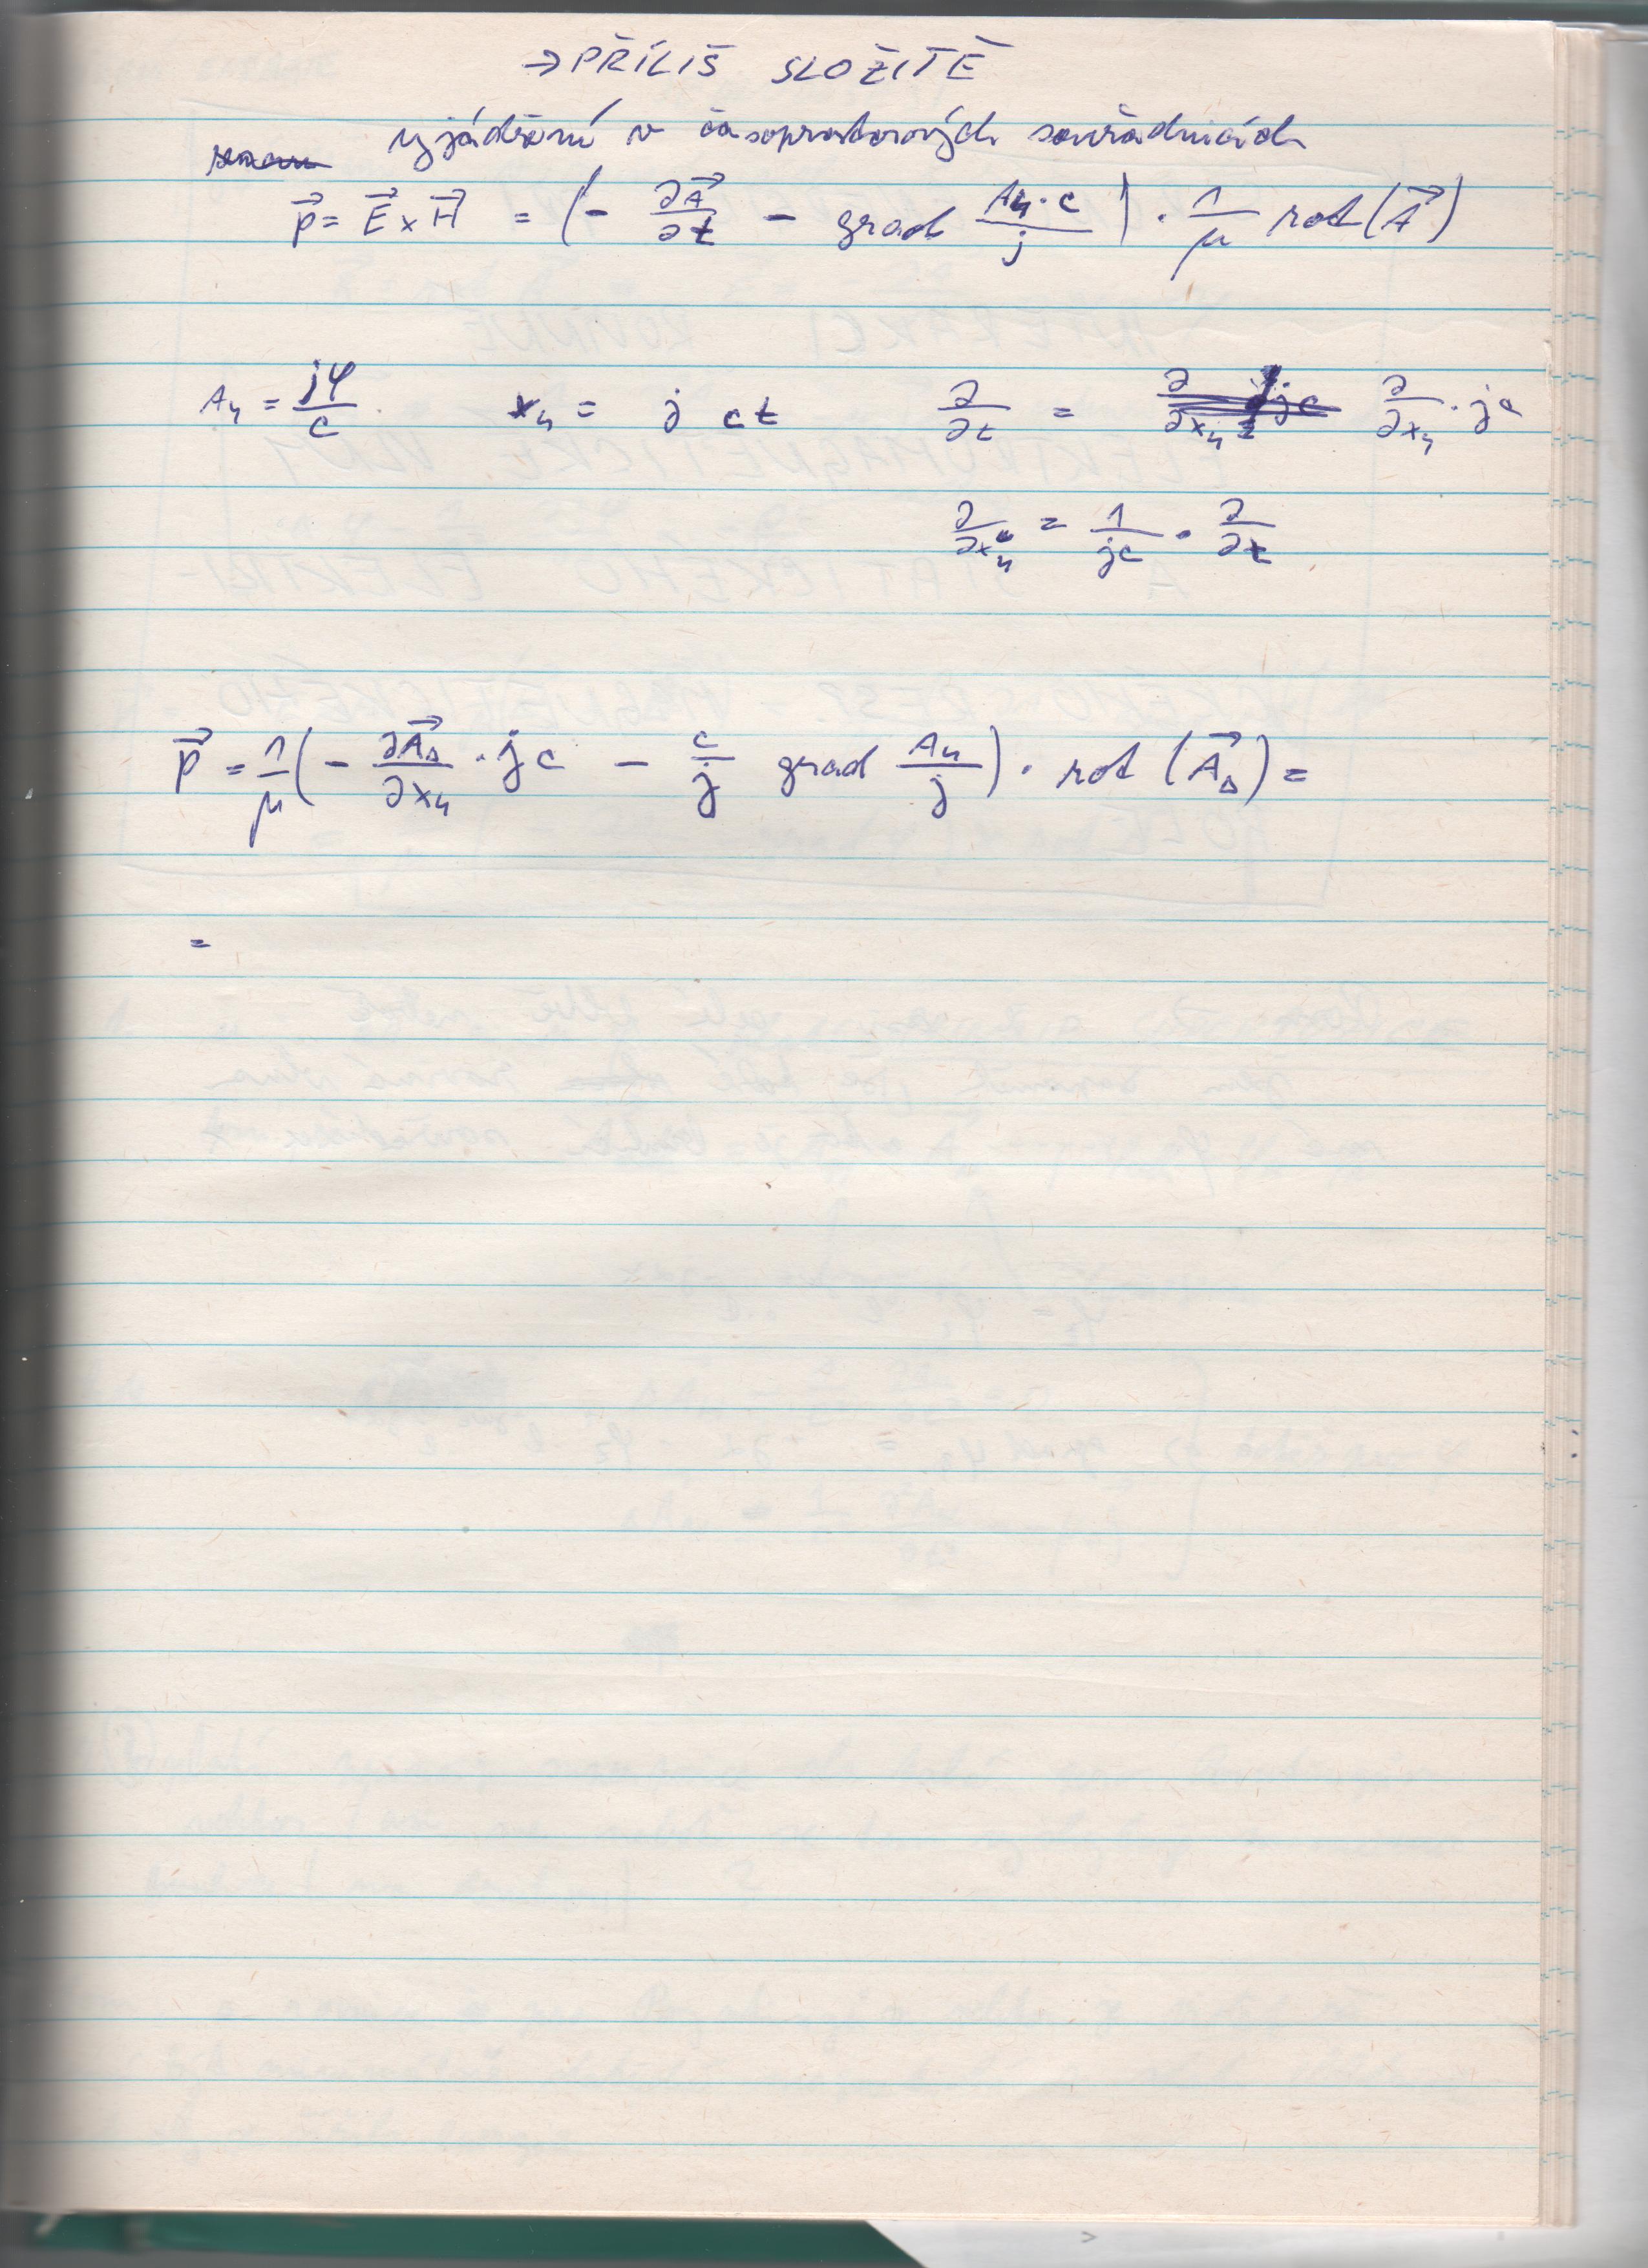 → PŘÍLIŠ SLOŽITĚ
vyjádření v časoprostorových souřadnicích
p⃗ = E⃗ × H⃗ = (- ∂A⃗/∂t - grad A₄·c/j) · 1/μ rot(A⃗)
A₄ = jφ/c x₄ = j ct ∂/∂t = ∂/∂x₄ · jc
∂/∂x₄ = 1/jc · ∂/∂t
p⃗ = 1/μ (- ∂A⃗_Δ/∂x₄ · jc - c/j grad A₄/j) · rot (A⃗_Δ) =
=